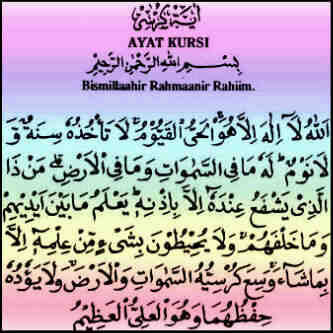 آية كرسي
AYAT KURSI
بِسْمِ اللهِ الرَّحْمٰنِ الرَّحِيْمِ
Bismillaahir Rahmaanir Rahiim.
اَللهُ لَآ اِلٰهَ اِلَّا هُوَ الْحَيُّ الْقَيُّوْمُ لَا تَأْخُذُهٗ سِنَةٌ وَّ
لَا نَوْمٌ لَهٗ مَا فِى السَّمٰوَاتِ وَمَا فِى الْاَرْضِ مَنْ ذَا
الَّذِيْ يَشْفَعُ عِنْدَهٗٓ اِلَّا بِاِذْنِهٖ يَعْلَمُ مَا بَيْنَ اَيْدِيْهِمْ
وَمَا خَلْفَهُمْ وَلَا يُحِيْطُوْنَ بِشَيْءٍ مِّنْ عِلْمِهٖٓ اِلَّا
بِمَا شَآءَ وَسِعَ كُرْسِيُّهُ السَّمٰوَاتِ وَالْاَرْضَ وَلَا يَؤُدُهٗ
حِفْظُهُمَا وَهُوَ الْعَلِيُّ الْعَظِيْمُ